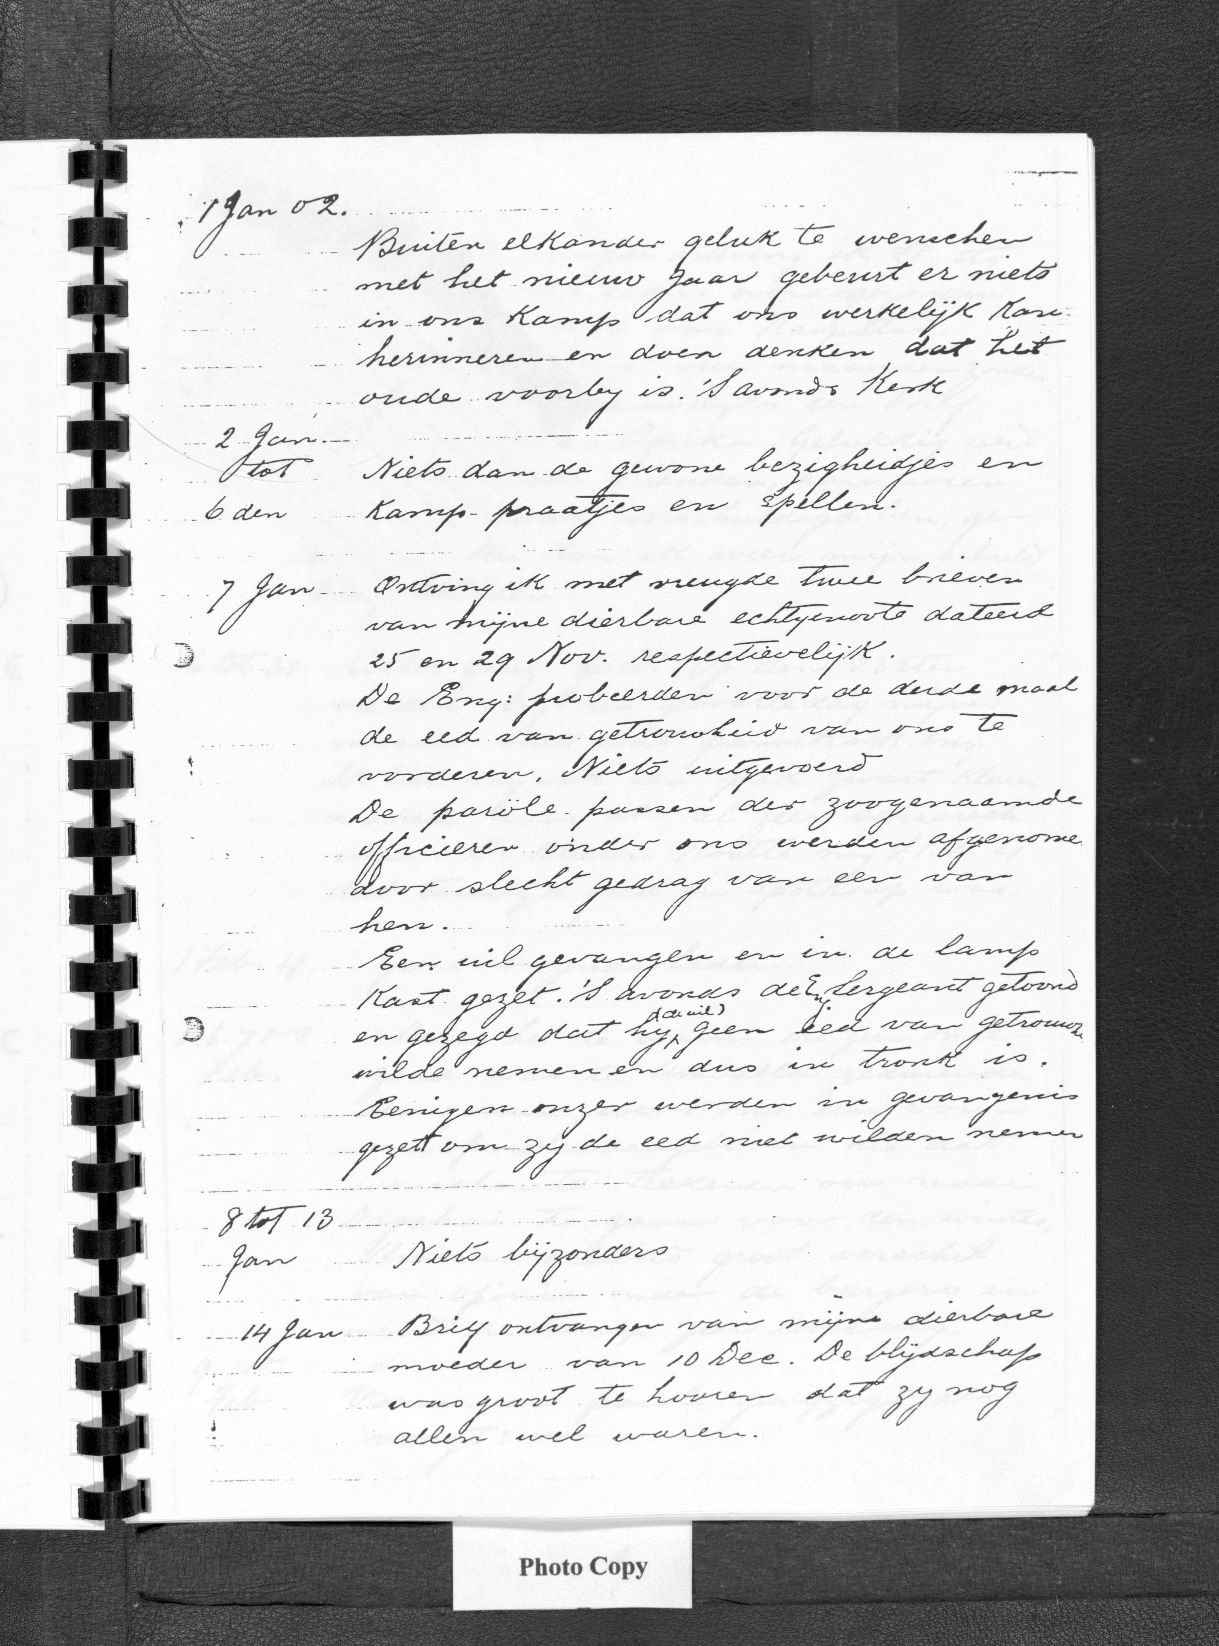 1 Jan 02.
Buiten elkander geluk te wenschen
met het nieuw Jaar gebeurt er niets
in ons Kamp dat ons werkelijk kan
herinneren en doen denken dat het
oude voorby is. 'S avonds Kerk
2 Jan.
tot Niets dan de gewone bezigheidjes en
6 den Kamp-praatjes en Spellen.
7 Jan Ontving ik met vreugde twee brieven
van mijne dierbare echtgenoote dateerd
25 en 29 Nov. respectievelijk.
De Eng: probeerden voor de derde maal
de eed van getrouwheid van ons te
vorderen. Niets uitgevoerd
De parôle passen der zoogenaamde
officieren onder ons werden afgenome
door slecht gedrag van een van
hen.
Een uil gevangen en in de lamp
Kast gezet. 'S avonds de Eng Sergeant getoond
en gezegd dat hy (de uil) geen eed van getrouwh
wilde nemen en dus in tronk is.
Eenigen onzer werden in gevangenis
gezet om zy de eed niet wilden nemen
8 tot 13
Jan Niets bijzonders
14 Jan Brief ontvangen van mijne dierbare
moeder van 10 Dec. De blijdschap
was groot te hooren dat zy nog
allen wel waren.
Photo Copy